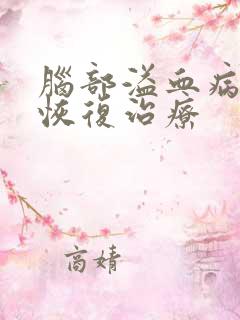 腦部溢血病
恢復治療
商婧